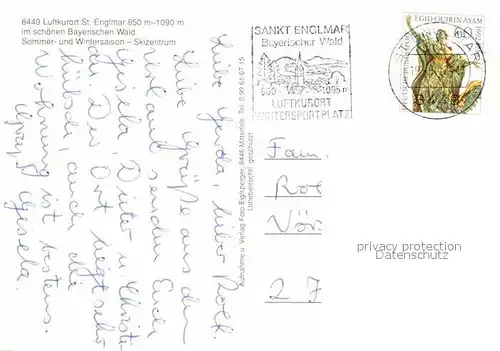 8449 Luftkurort St. Englmar 850 m–1090 m
im schönen Bayerischen Wald
Sommer- und Wintersaison – Skizentrum
Liebe Gerda, lieber Rolf.
Liebe Grüße aus dem
Urlaub senden Euch
Gisela, Dieter u. Christi
an. Der Ort liegt sehr
hübsch, auch die
Wohnung ist bestens.
Gisela.
Aufnahme u. Verlag Foto Eiglsperger, 8446 Mitterfels, Tel. 0 99 61/67 15
Urheberrechtl. geschützt
SANKT ENGLMAR
Bayerischer Wald
800 1095 m
LUFTKURORT
WINTERSPORTPLATZ
EGID QUIRIN ASAM
DEUTSCHE BUNDESPOST
60
Fam.
Rol
Vör
27
privacy protection
Datenschutz